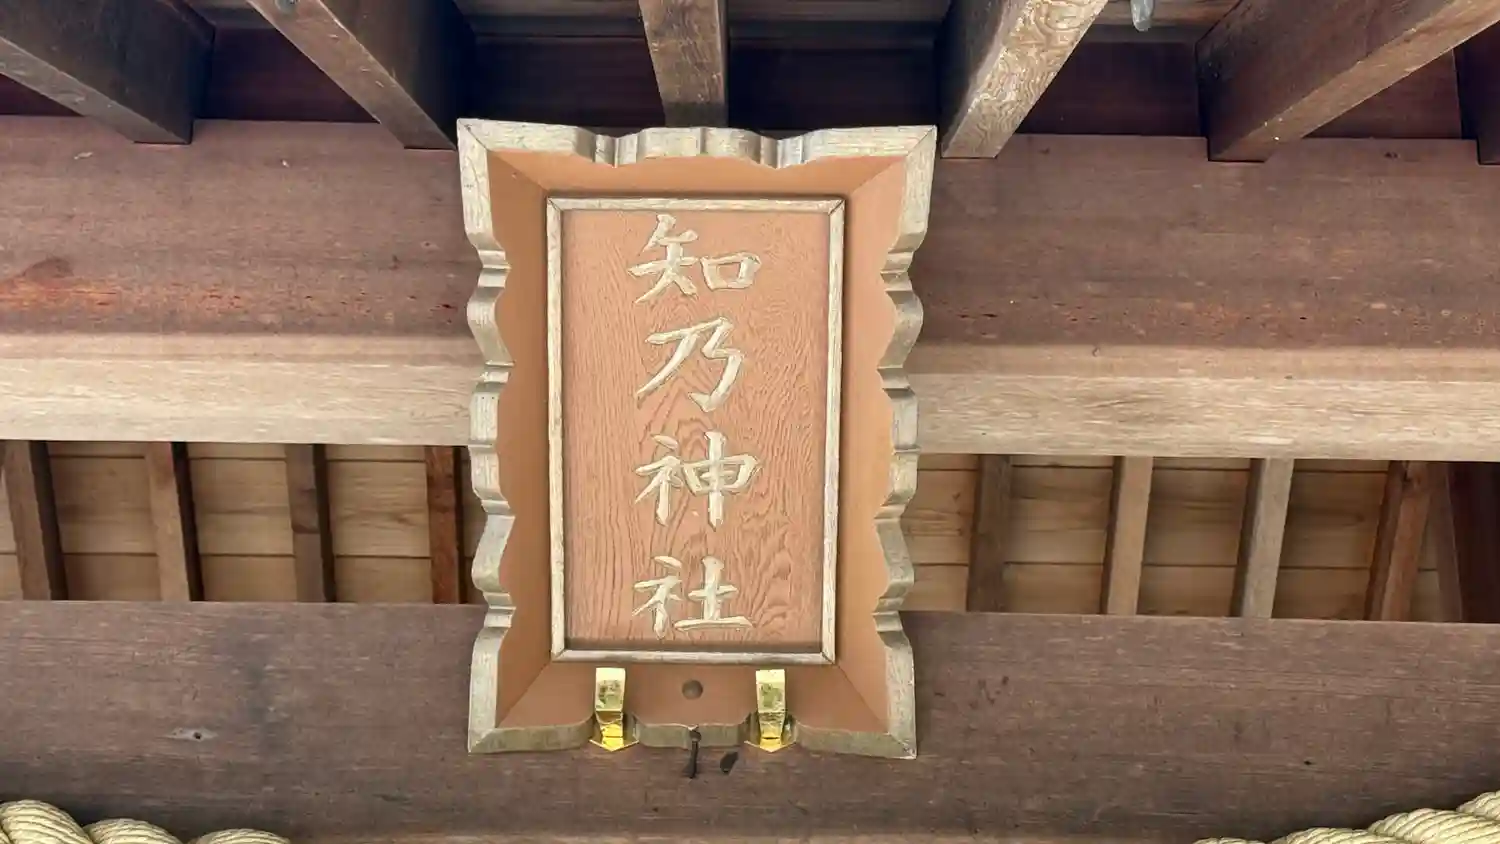 知乃神社